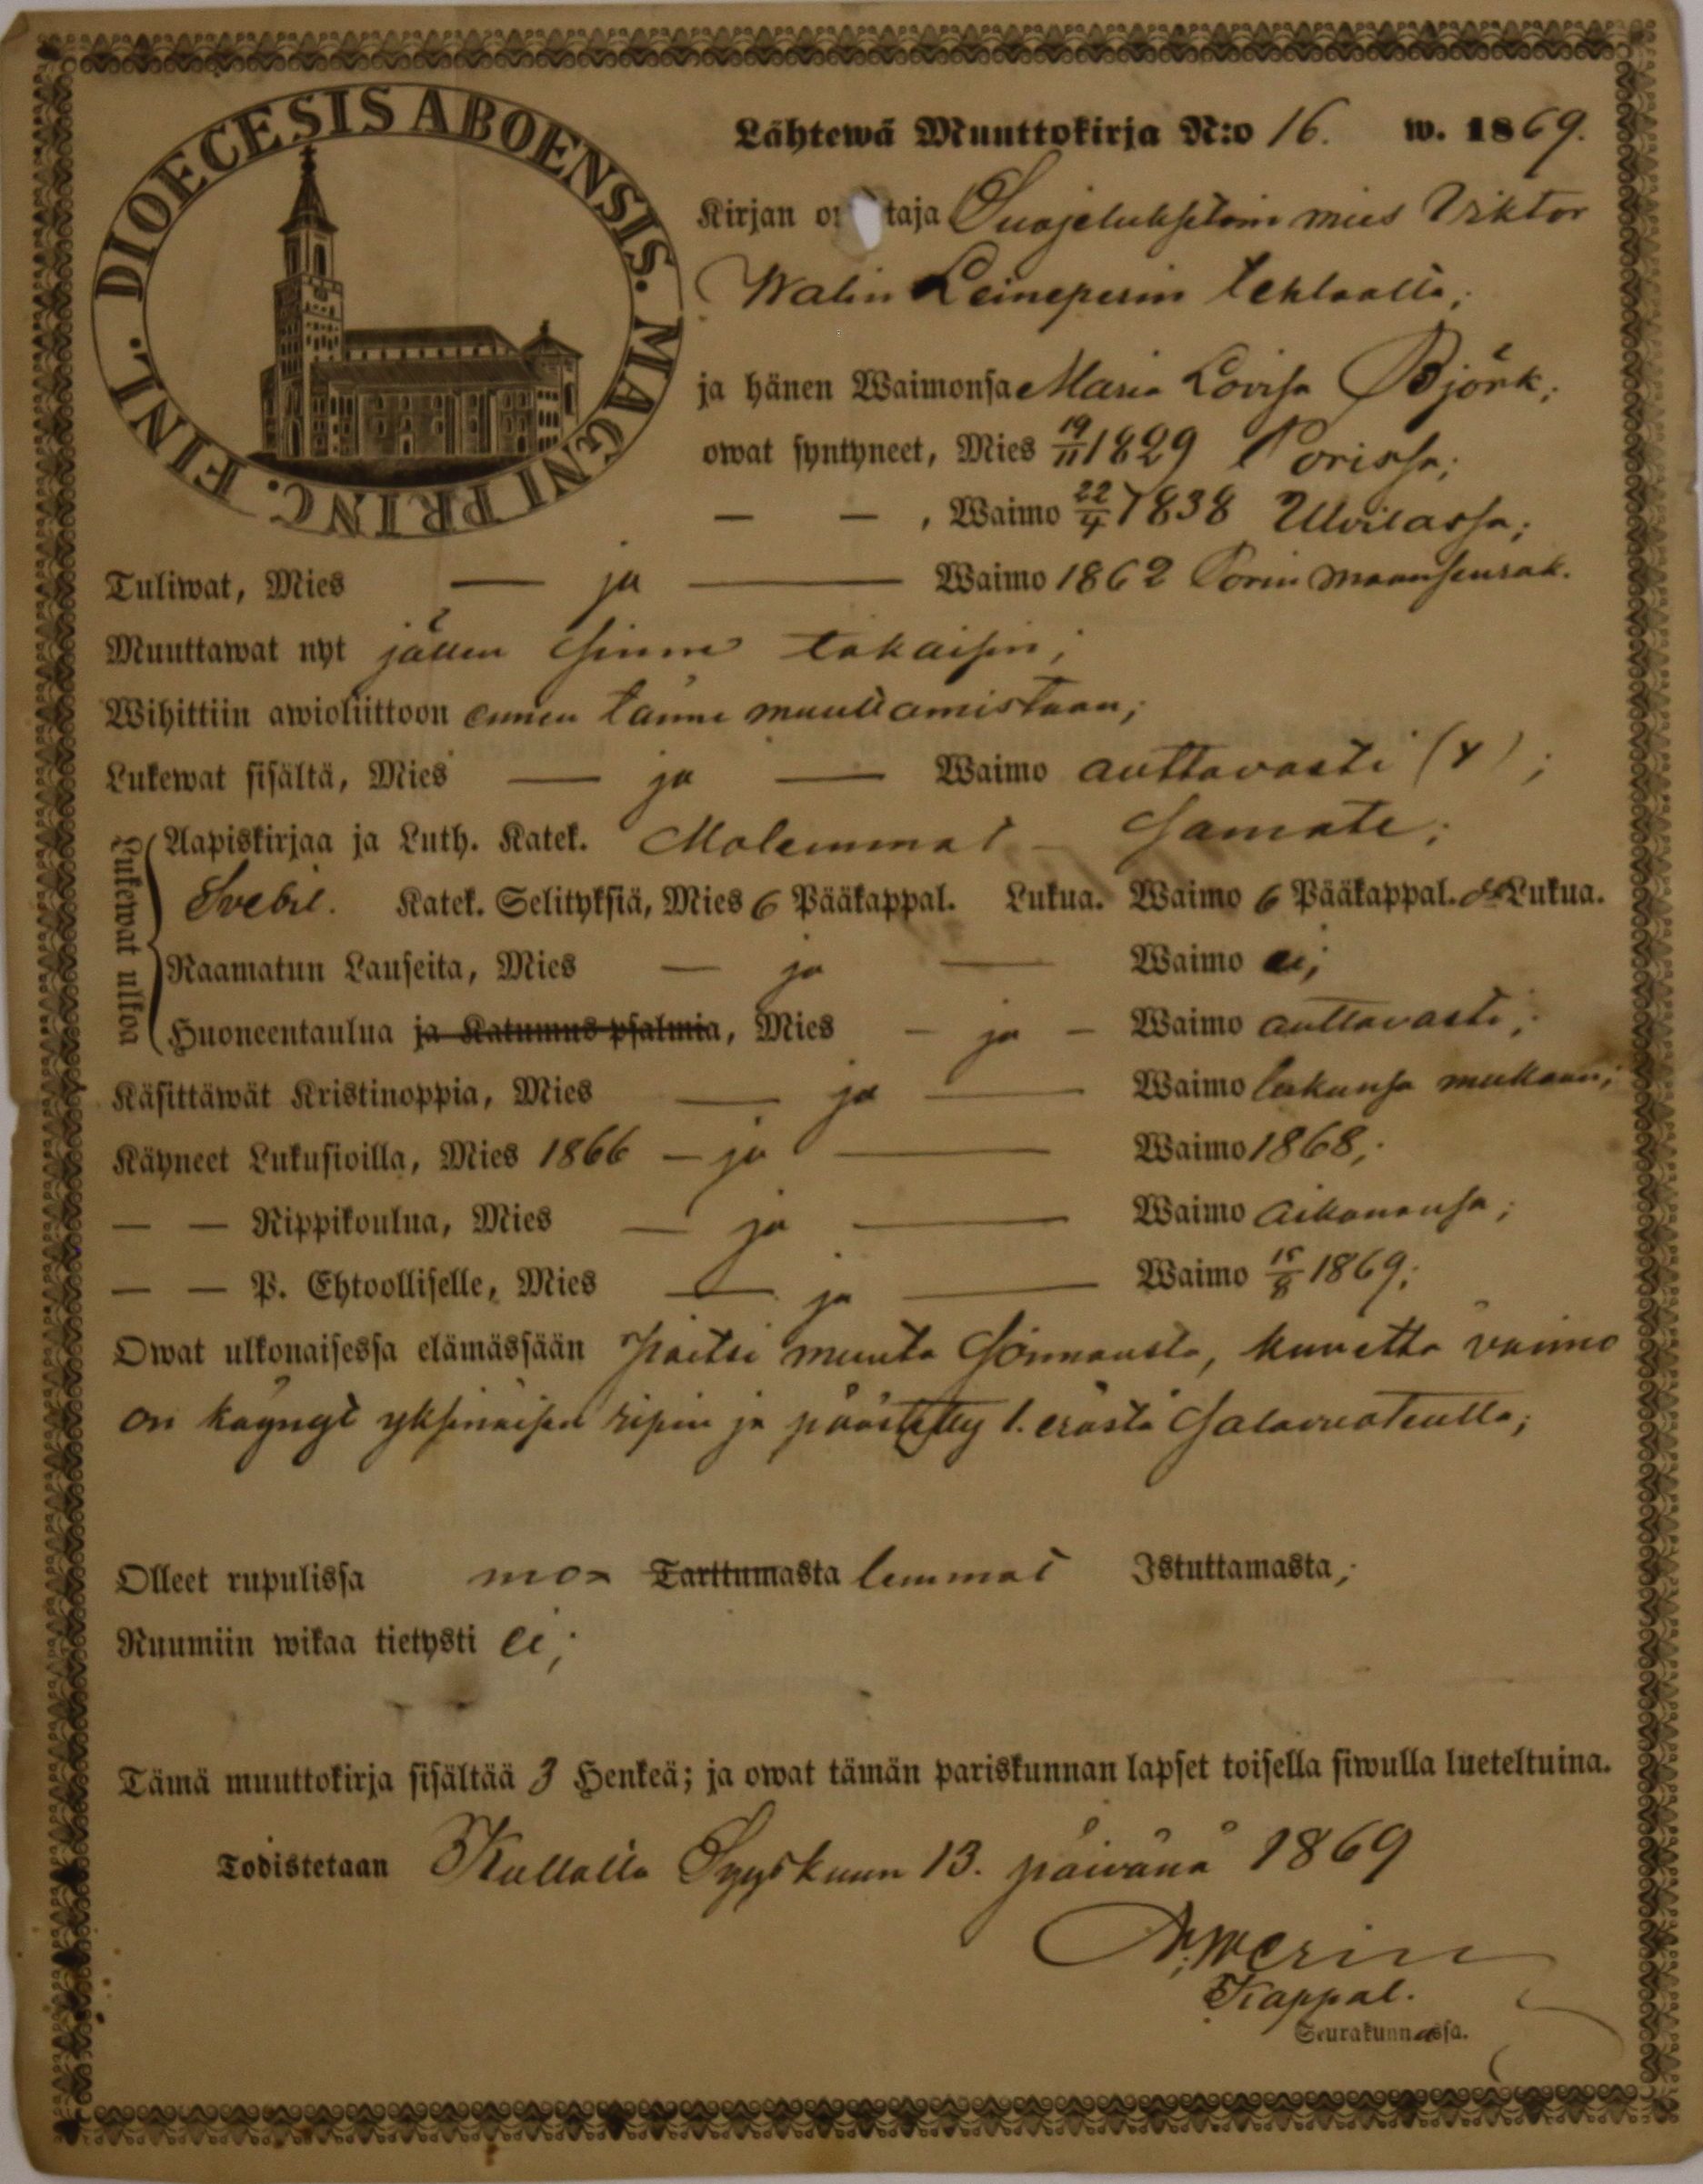 DIOECESIS ABOENSIS. MAGNI PRINC. FINL.
Lähtewä Muuttokirja N:o 16. w. 1869.
Kirjan o taja Suojeluksetoin mies Viktor
Walin Leineperin tehtaalta;
ja hänen Waimonsa Maria Lovisa Björk;
owat syntyneet, Mies 19/11 1829 Porissa;
— — , Waimo 22/4 1838 Ulvilassa;
Tuliwat, Mies — ja — Waimo 1862 Porin maanseurak.
Muuttawat nyt jällen sinne takaisin;
Wihittiin awioliittoon ennen tänne muuttamistaan;
Lukewat sisältä, Mies — ja — Waimo auttavasti (y);
Lukewat ulkoa
Aapiskirjaa ja Luth. Katek. Molemmat — samate;
Svebil. Katek. Selityksiä, Mies 6 Pääkappal. Lukua. Waimo 6 Pääkappal. Lukua.
Raamatun Lauseita, Mies — ja — Waimo ei;
Huoneentaulua ja Katumus psalmia, Mies — ja — Waimo auttavasti;
Käsittäwät Kristinoppia, Mies — ja — Waimo lukunsa mukaan;
Käyneet Lukusioilla, Mies 1866 — ja — Waimo 1868;
— — Rippikoulua, Mies — ja — Waimo aikanansa;
— — P. Ehtoolliselle, Mies — ja — Waimo 15/8 1869;
Owat ulkonaisessa elämässään paitsi muuta, kuvetta vaimo
on käynyt yksinäisen ripin ja päästetty 1. erästä salavuoteutta;
Olleet rupulissa mo= Tarttumasta lemmat Istuttamasta;
Ruumiin wikaa tietysti ei;
Tämä muuttokirja sisältää 3 Henkeä; ja owat tämän pariskunnan lapset toisella siwulla lueteltuina.
Todistetaan Kullalla Syyskuun 13. päivänä 1869
Kappal.
Seurakunnassa.